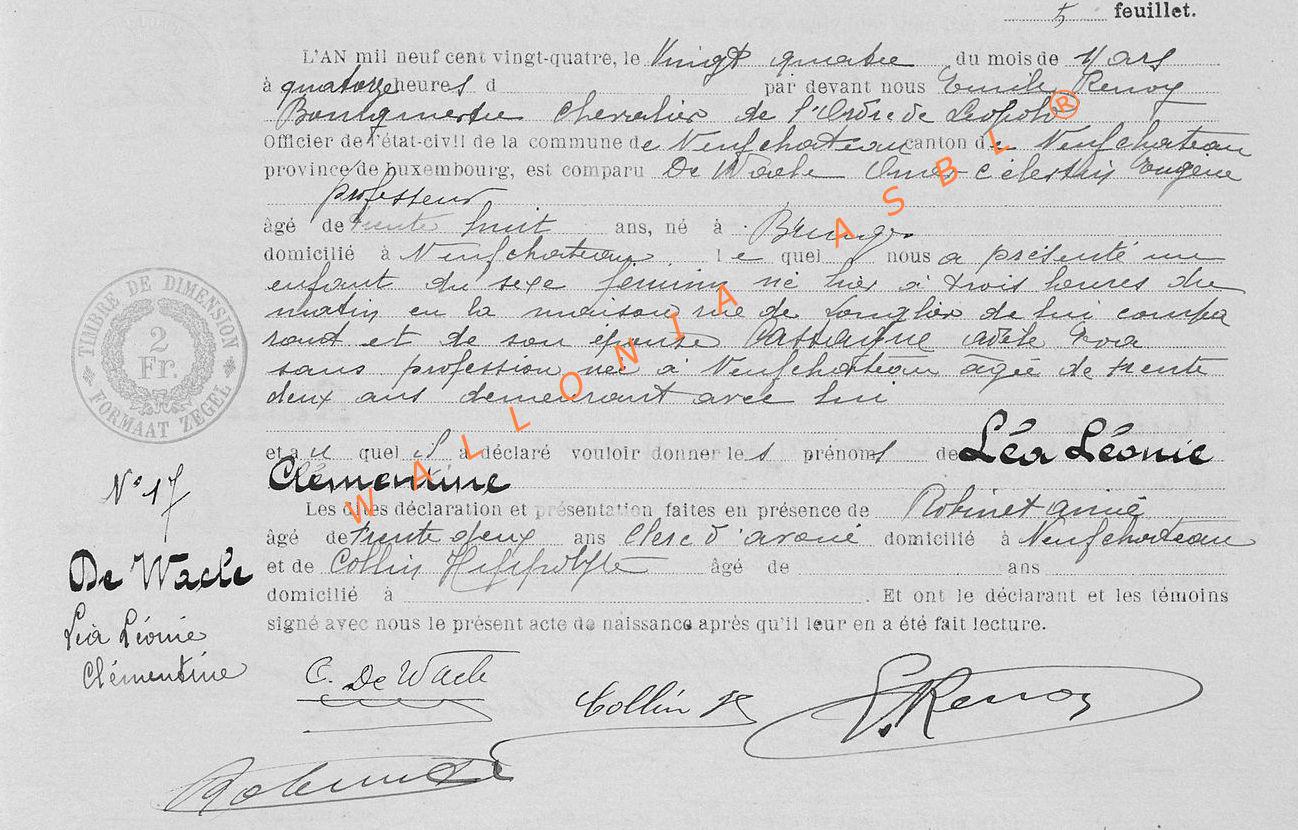 5 feuillet.
L'AN mil neuf cent vingt-quatre, le Vingt quatre du mois de Mars
à quatorze heures d par devant nous Emile Renoy
Bourgmestre Chevalier de l'Ordre de Léopold
Officier de l'état-civil de la commune de Neufchateau canton de Neufchateau
province de Luxembourg, est comparu De Wachter Omer Célestin Eugène
professeur
âgé de trente huit ans, né à Bruges
domicilié à Neufchateau le quel nous a présenté un
enfant du sexe féminin né hier à trois heures du
matin en la maison rue de Longlier de lui compa
rant et de son épouse Adèle
sans profession née à Neufchateau âgée de trente
deux ans demeurant avec lui
et au quel il a déclaré vouloir donner les prénoms de Léa Léonie
Clémentine
Les dites déclaration et présentation faites en présence de Robinet Aimé
âgé de trente deux ans Clerc d'avoué domicilié à Neufchateau
et de Collin Hippolyte âgé de ans
domicilié à . Et ont le déclarant et les témoins
signé avec nous le présent acte de naissance après qu'il leur en a été fait lecture.
TIMBRE DE DIMENSION
2
Fr.
FORMAAT ZEGEL
N° 17
De Waele
Léa Léonie
Clémentine
C. De Waele
Collin H
E. Renoy
Robinet
WALLONIA ASBL ®